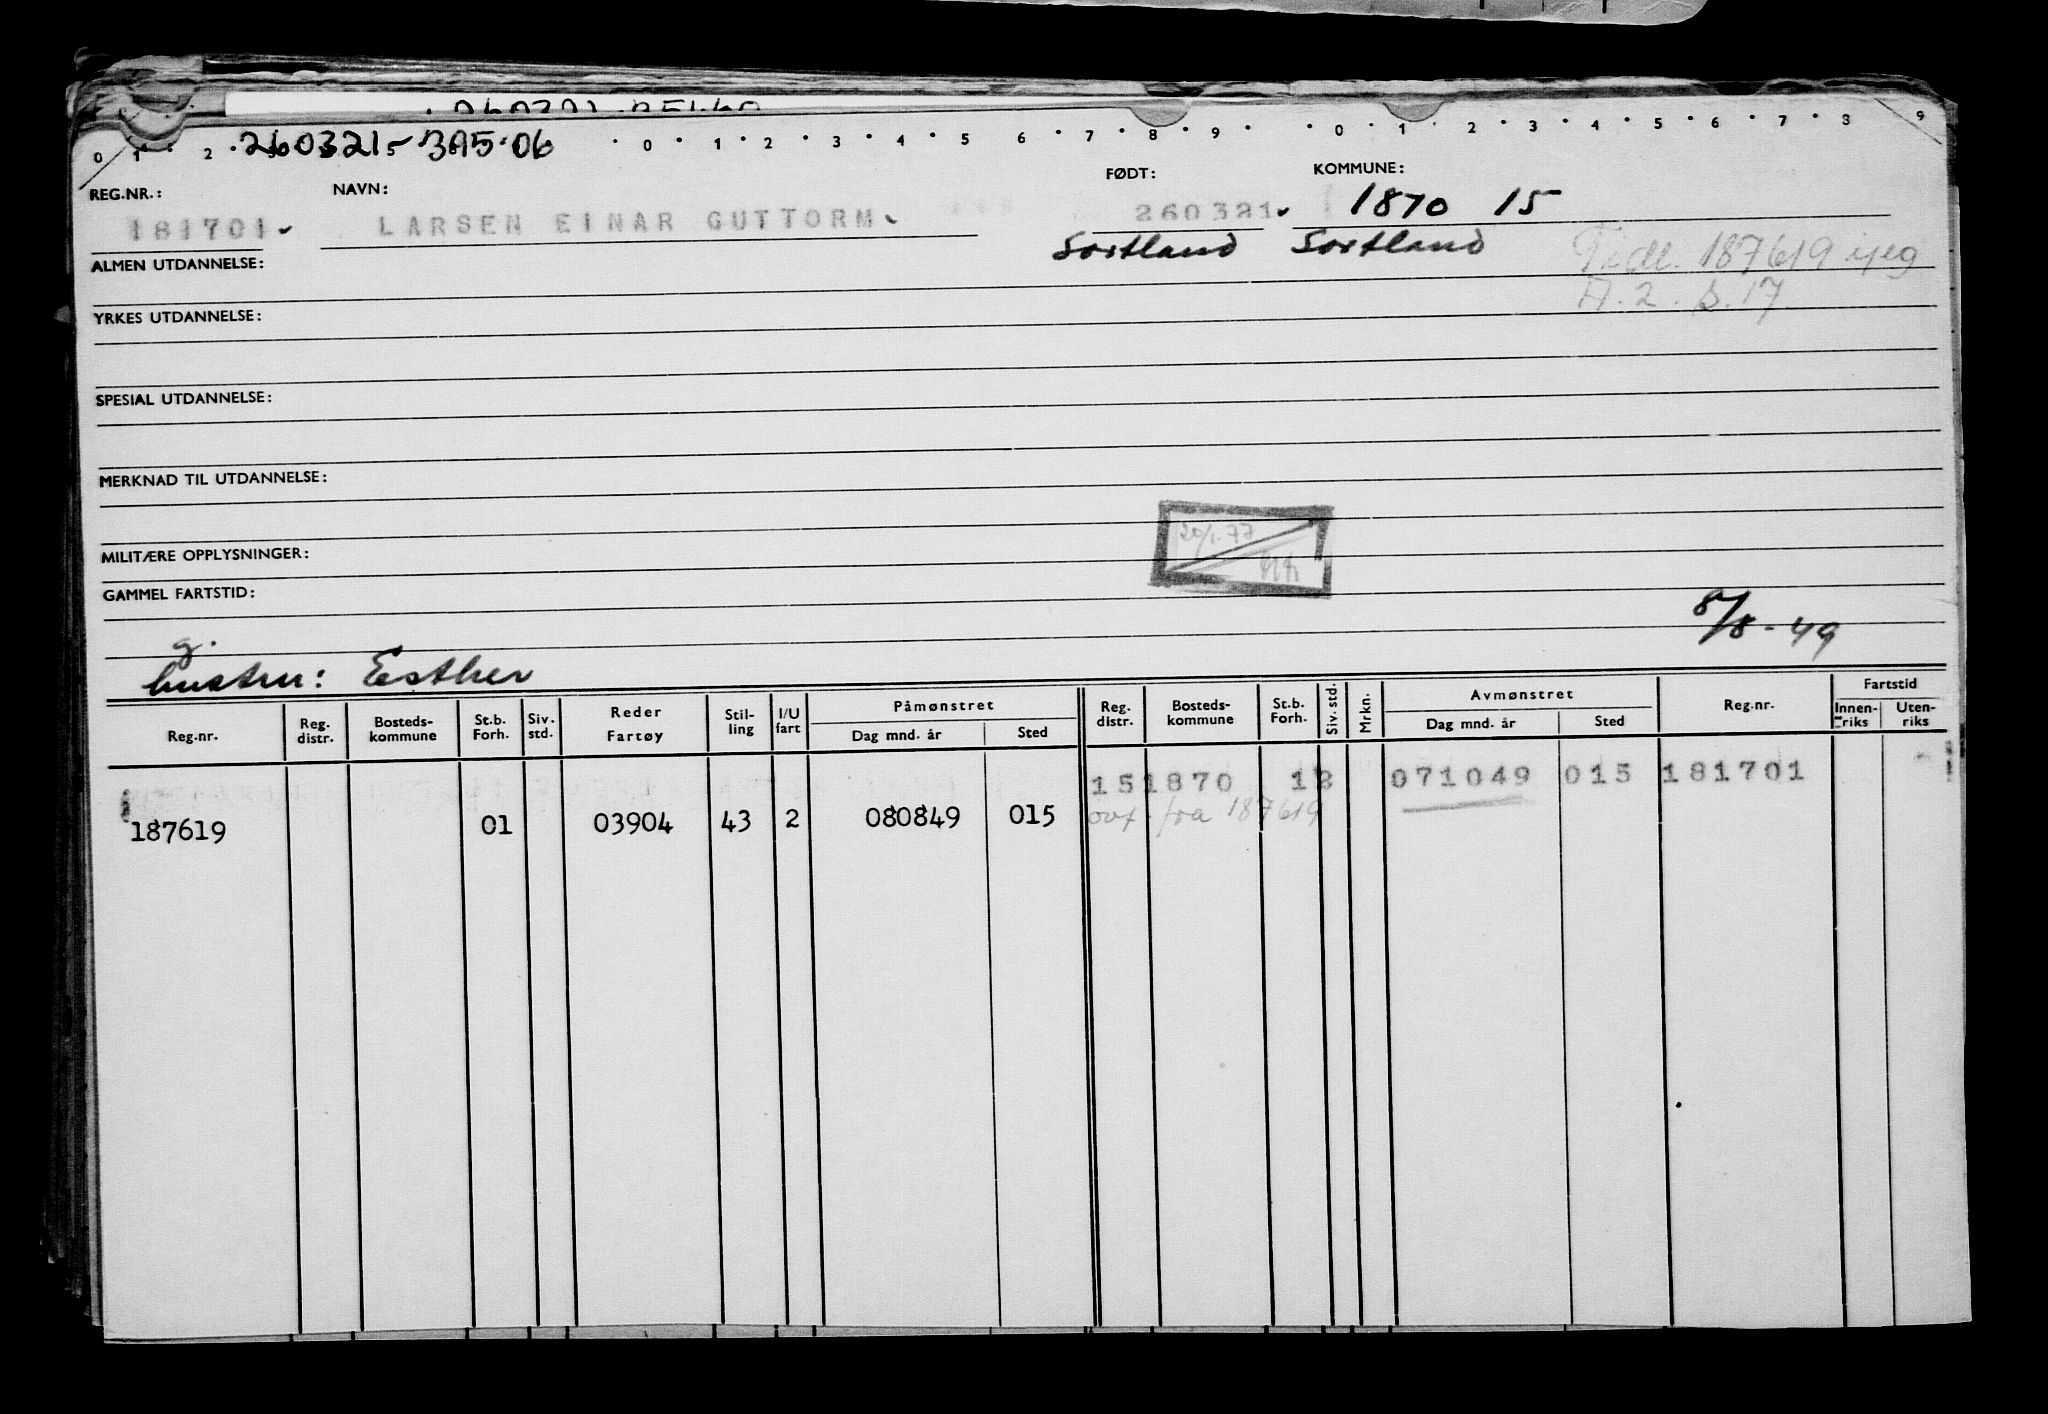 260321-395-06
0 1 2 5 0 1 2 3 4 5 6 7 8 9 0 1 2 3 4 5 6 7 8 9
REG.NR.: NAVN: FØDT: KOMMUNE:
181701 LARSEN EINAR GUTTORM 260321 1870 15
Sortland Sortland
ALMEN UTDANNELSE: Tidl. 187619
YRKES UTDANNELSE: A.2. S.17
SPESIAL UTDANNELSE:
MERKNAD TIL UTDANNELSE:
20/1.77
MILITÆRE OPPLYSNINGER:
GAMMEL FARTSTID:
8/8-49
g.
hustru: Esther
Reg.nr. Reg. distr. Bosteds-kommune St.b. Forh. Siv. std. Reder Fartøy Stil-ling I/U fart Påmønstret Dag mnd. år Sted Reg. distr. Bosteds-kommune St.b. Forh. Siv. std. Mrkn. Avmønstret Dag mnd. år Sted Reg.nr. Fartstid Innen-riks Uten-riks
151870 12 071049 015 181701
187619 01 03904 43 2 080849 015 ovf. fra 187619